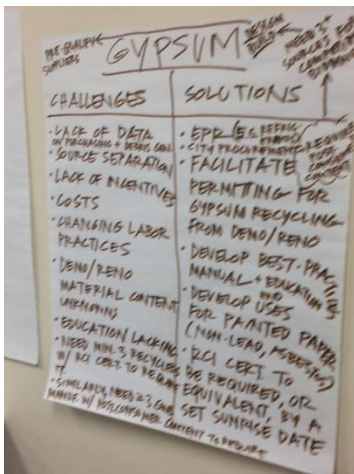 PRE-QUALIFY
SUPPLIERS
GYPSUM
DESIGN
BUILD
NEED 3+
SOURCES FOR
CHALLENGES
SOLUTIONS
• LACK OF DATA
ON PURCHASING + DEBRIS GEN.
• SOURCE SEPARATION
• LACK OF INCENTIVES
• COSTS
• CHANGING LABOR
PRACTICES
• DEMO/RENO
MATERIAL CONTENT
UNKNOWN
• EDUCATION LACKING
• NEED MIN. 3 RECYCLERS
W/ RCI CERT TO REQUIRE
IT.
• SIMILARLY, NEED ≥ 3
W/ POSTCONSUMER CONTENT TO REQUIRE
• EPR (E.G.
• CITY PROCUREMENT
REQUIRE
POST
CONSUMER
CONTENT
• FACILITATE
PERMITTING FOR
GYPSUM RECYCLING
FROM DEMO/RENO
• DEVELOP BEST-PRACTICE
MANUAL + EDUCATION
• DEVELOP END
USES
FOR PAINTED PAPER
(NON-LEAD, ASBESTOS)
• RCI CERT TO
BE REQUIRED, OR
EQUIVALENT, BY A
SET SUNRISE DATE